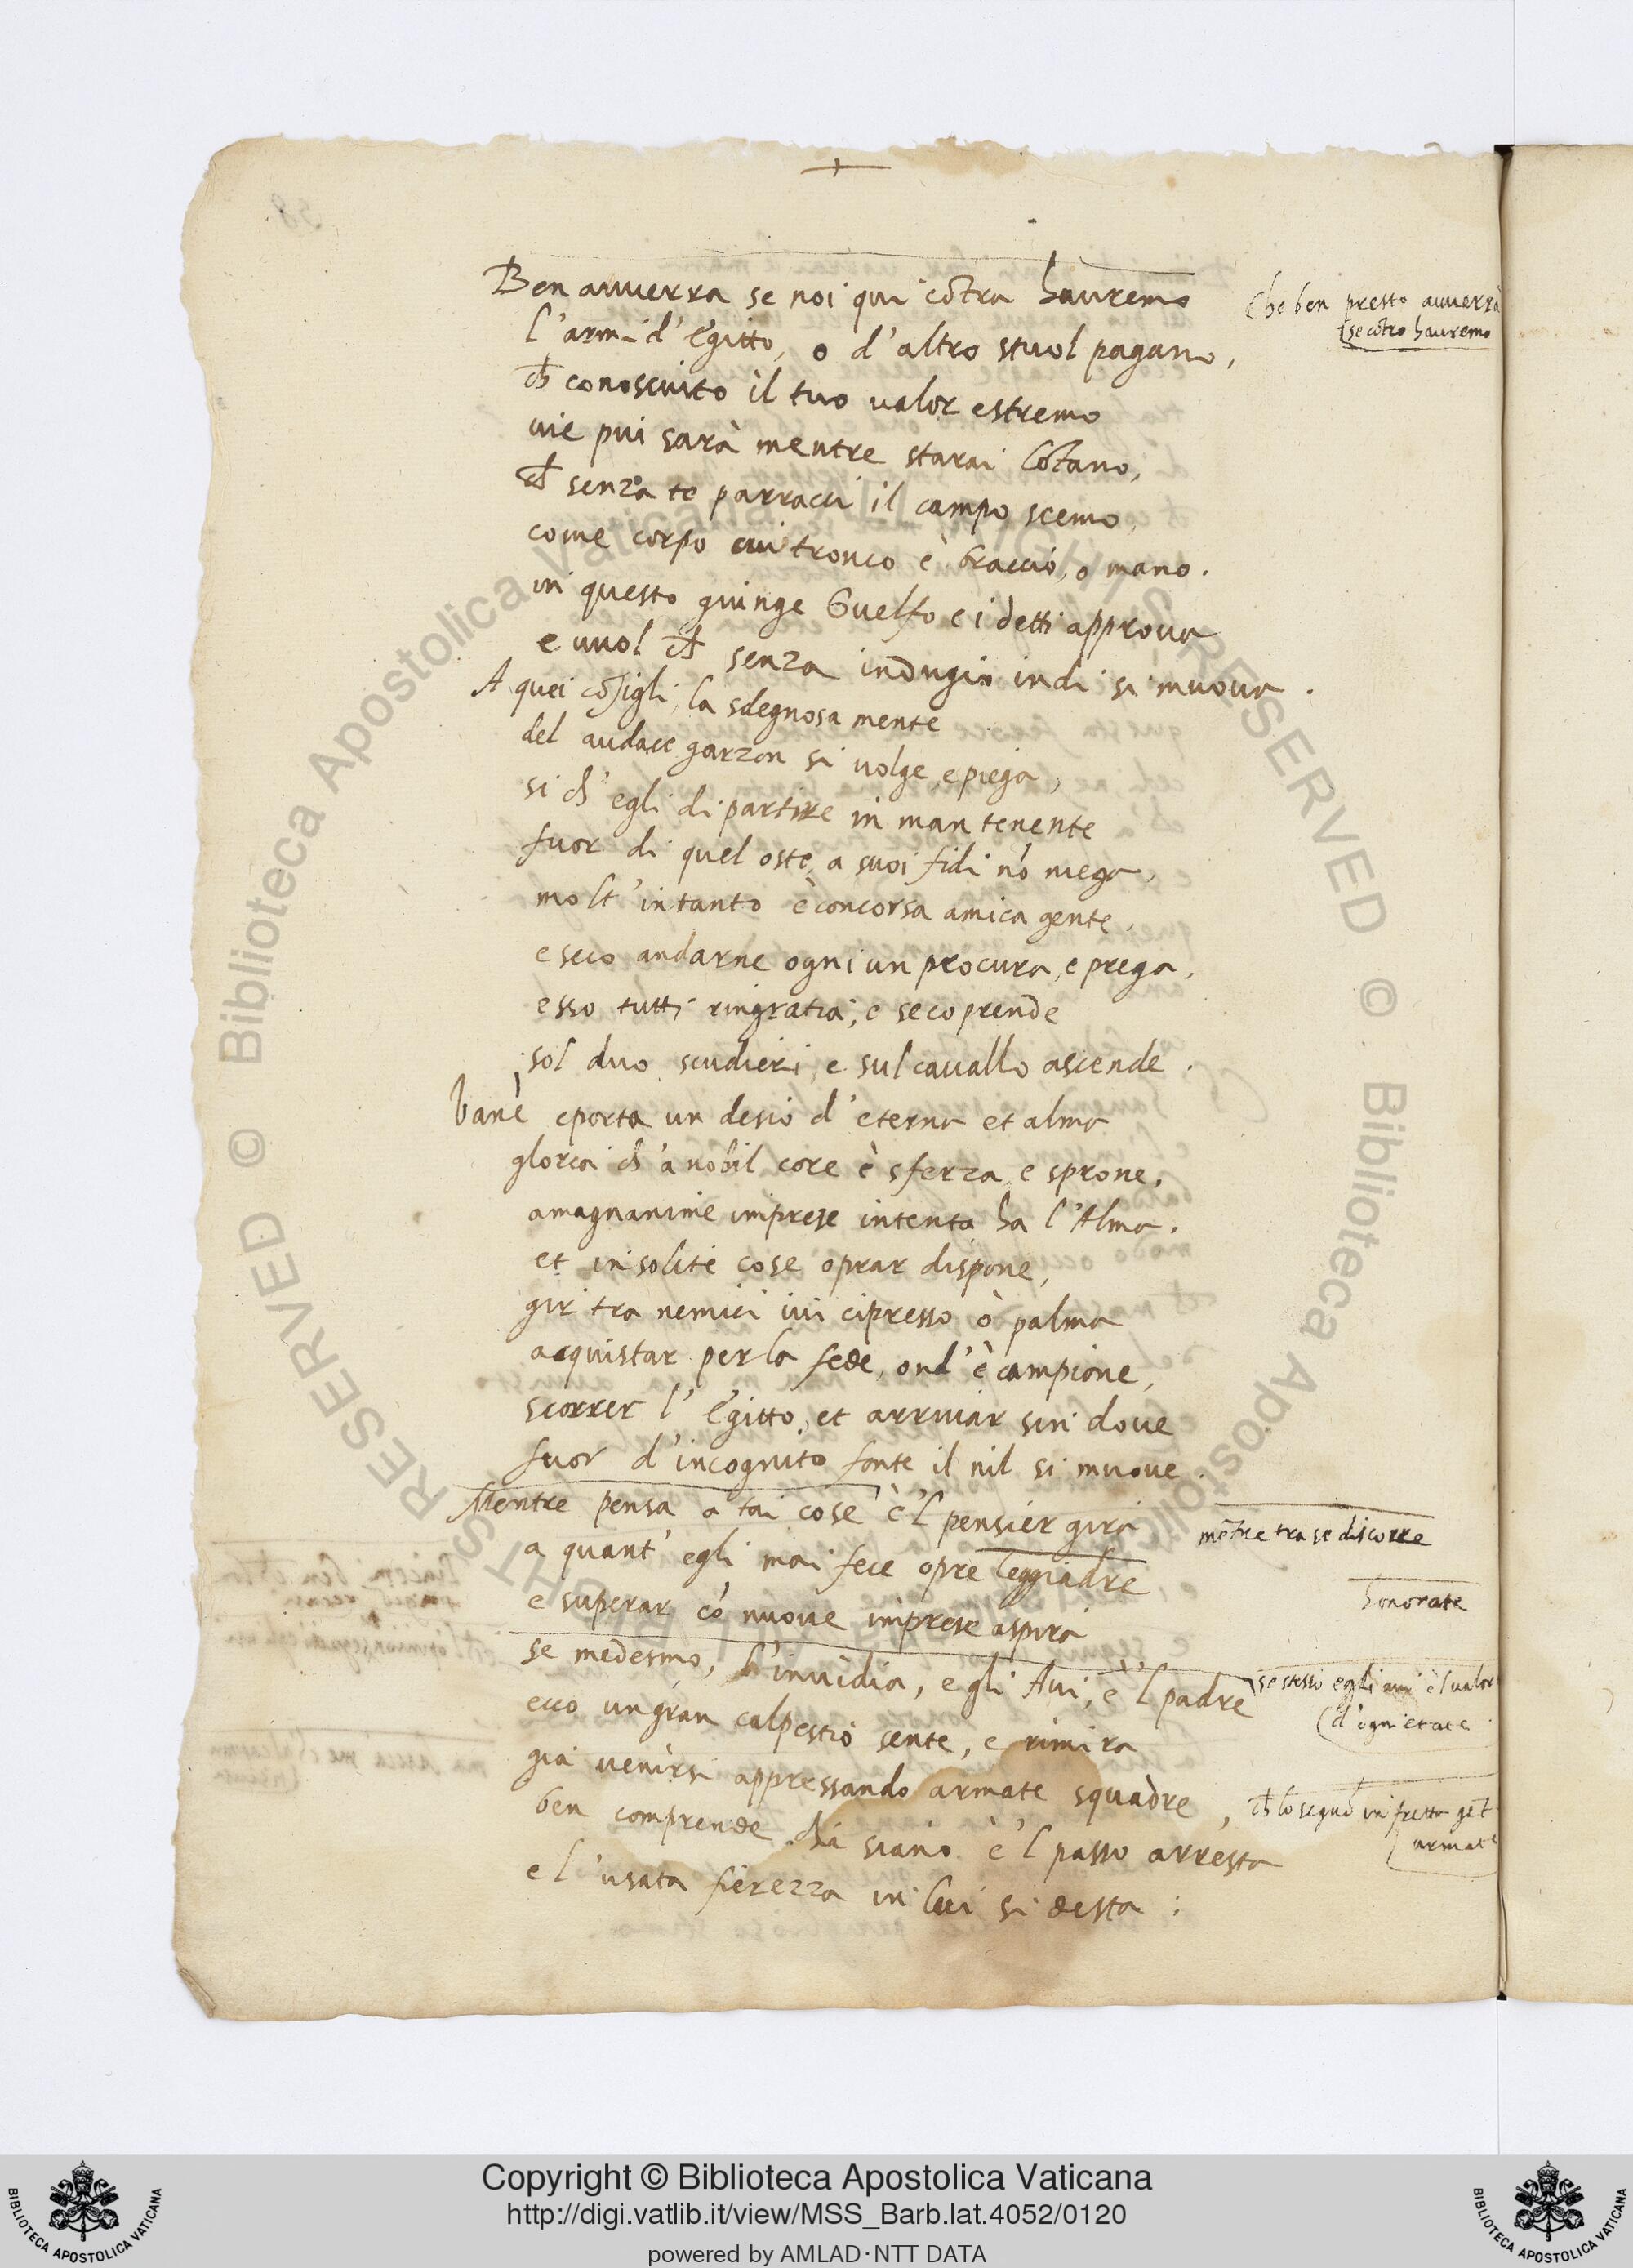 Ben avverra se noi qui cõtra hauremo
l'armi d'Egitto, o d'altro stuol pagano,
ch conosciuto il tuo valor estremo
vie piu sarà mentre starai lõtano,
ch senza te parracci il campo scemo,
come corpo cui tronco è braccio, o mano.
in questo giunge Guelfo e i detti approva
e vuol ch senza indugio indi si muova.
A quei cõsigli la sdegnosa mente
del audace garzon si volge, e piega,
si ch'egli di partire in mantenente
fuor di quel oste a suoi fidi nõ niega.
molt'intanto è concorsa amica gente,
e seco andarne ogni un procura, e prega,
esso tutti ringratia, e seco prende
sol duo scudieri, e sul cavallo ascende.
Vanè e porta un desio d'eterna et alma
gloria ch'a nobil core è sferza, e sprone,
a magnanime imprese intenta ha l'Alma.
et insolite cose oprar dispone,
gir tra nemici ivi cipresso ò palma
acquistar per la fede, ond'è campione,
scorrer l'Egitto, et arrivar sin dove
fuor d'incognito fonte il nil si muove.
Mentre pensa a tai cose è'l pensier gira
a quant'egli mai fece opre leggiadre
e superar cõ nuove imprese aspira
se medesmo, l'invidia, e gli Avi, è'l padre
ecco un gran calpestio sente, e rimira
già venirsi appressando armate squadre,
ben comprende chi siano è'l passo arresta
e l'usata fierezza in lui si desta:
Che ben presto avverrà
se cõtro hauremo
mẽtre tra se discorre
honorate
se stesso e gli avi è'l valor
d'ogni etate
ch lo segue in fretta gẽte
armate
Copyright © Biblioteca Apostolica Vaticana
http://digi.vatlib.it/view/MSS_Barb.lat.4052/0120
powered by AMLAD·NTT DATA
BIBLIOTECA APOSTOLICA VATICANA
BIBLIOTECA APOSTOLICA VATICANA